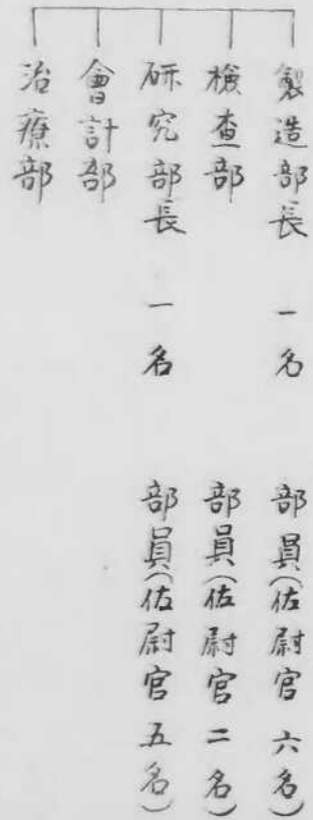 製造部長 一名 部員(佐尉官 六名)
檢查部 部員(佐尉官 二名)
研究部長 一名 部員(佐尉官 五名)
會計部
治療部